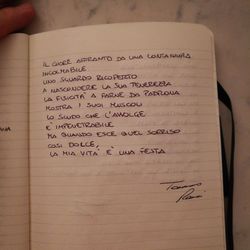 IL CUORE AFFRANTO DA UNA LONTANANZA
INCOLMABILE
UNO SGUARDO RICOPERTO
A NASCONDERE LA SUA TENEREZZA
LA FISICITÀ A FARNE DA PADRONA
MOSTRA I SUOI MUSCOLI
LO SCUDO CHE L'AVVOLGE
E' IMPENETRABILE
MA QUANDO ESCE QUEL SORRISO
COSI DOLCE,
LA MIA VITA' E' UNA FESTA